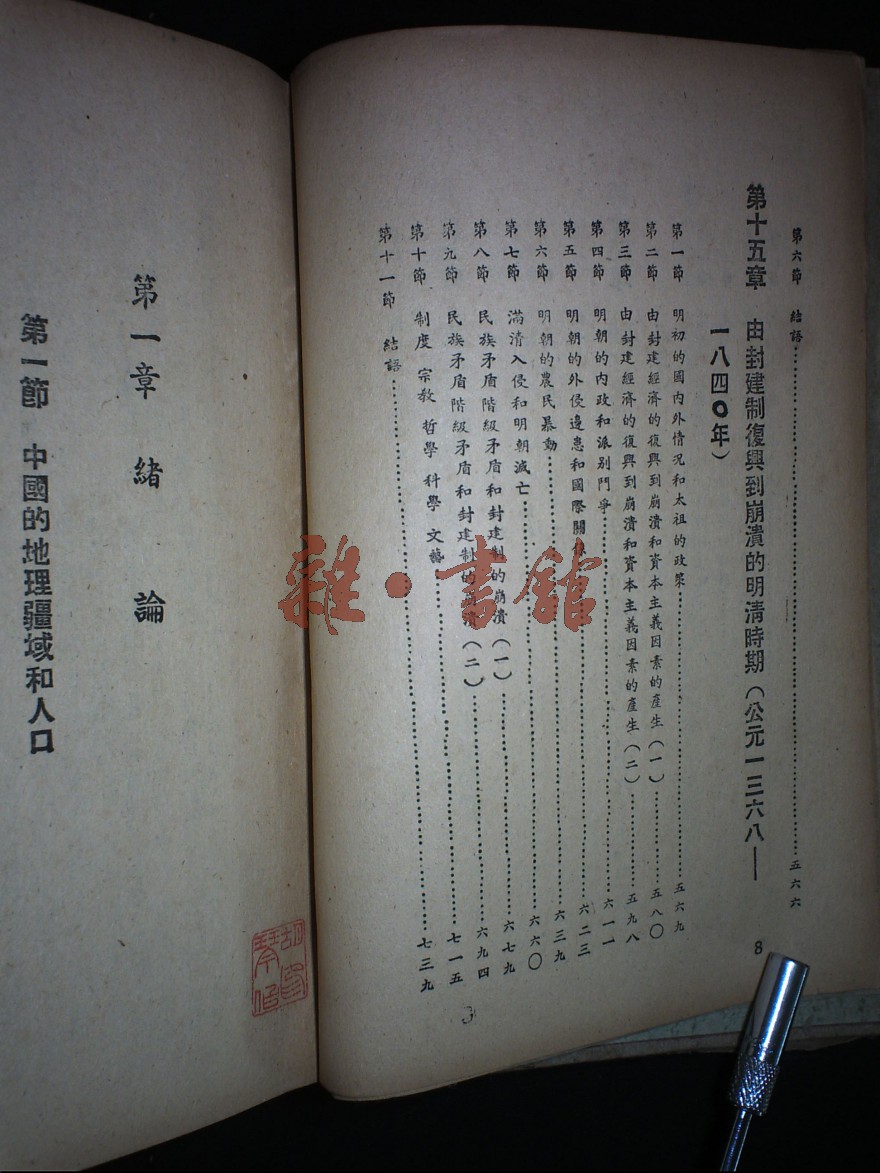 第六節 結語……五六六
第十五章 由封建制復興到崩潰的明清時期（公元一三六八——
一八四〇年）
第一節 明初的國內外情况和太祖的政策……五六九
第二節 由封建經濟的復興到崩潰和資本主義因素的產生（一）……五八〇
第三節 由封建經濟的復興到崩潰和資本主義因素的產生（二）……五九八
第四節 明朝的內政和派別鬥爭……六一一
第五節 明朝的外侵邊患和國際關係……六二三
第六節 明朝的農民暴動……六三九
第七節 滿清入侵和明朝滅亡……六六〇
第八節 民族矛盾階級矛盾和封建制的崩潰（一）……六七九
第九節 民族矛盾階級矛盾和封建制的崩潰（二）……六九四
第十節 制度 宗教 哲學 科學 文藝……七一五
第十一節 結語……七三九
8
第一章 緒論
第一節 中國的地理疆域和人口
雜·書館